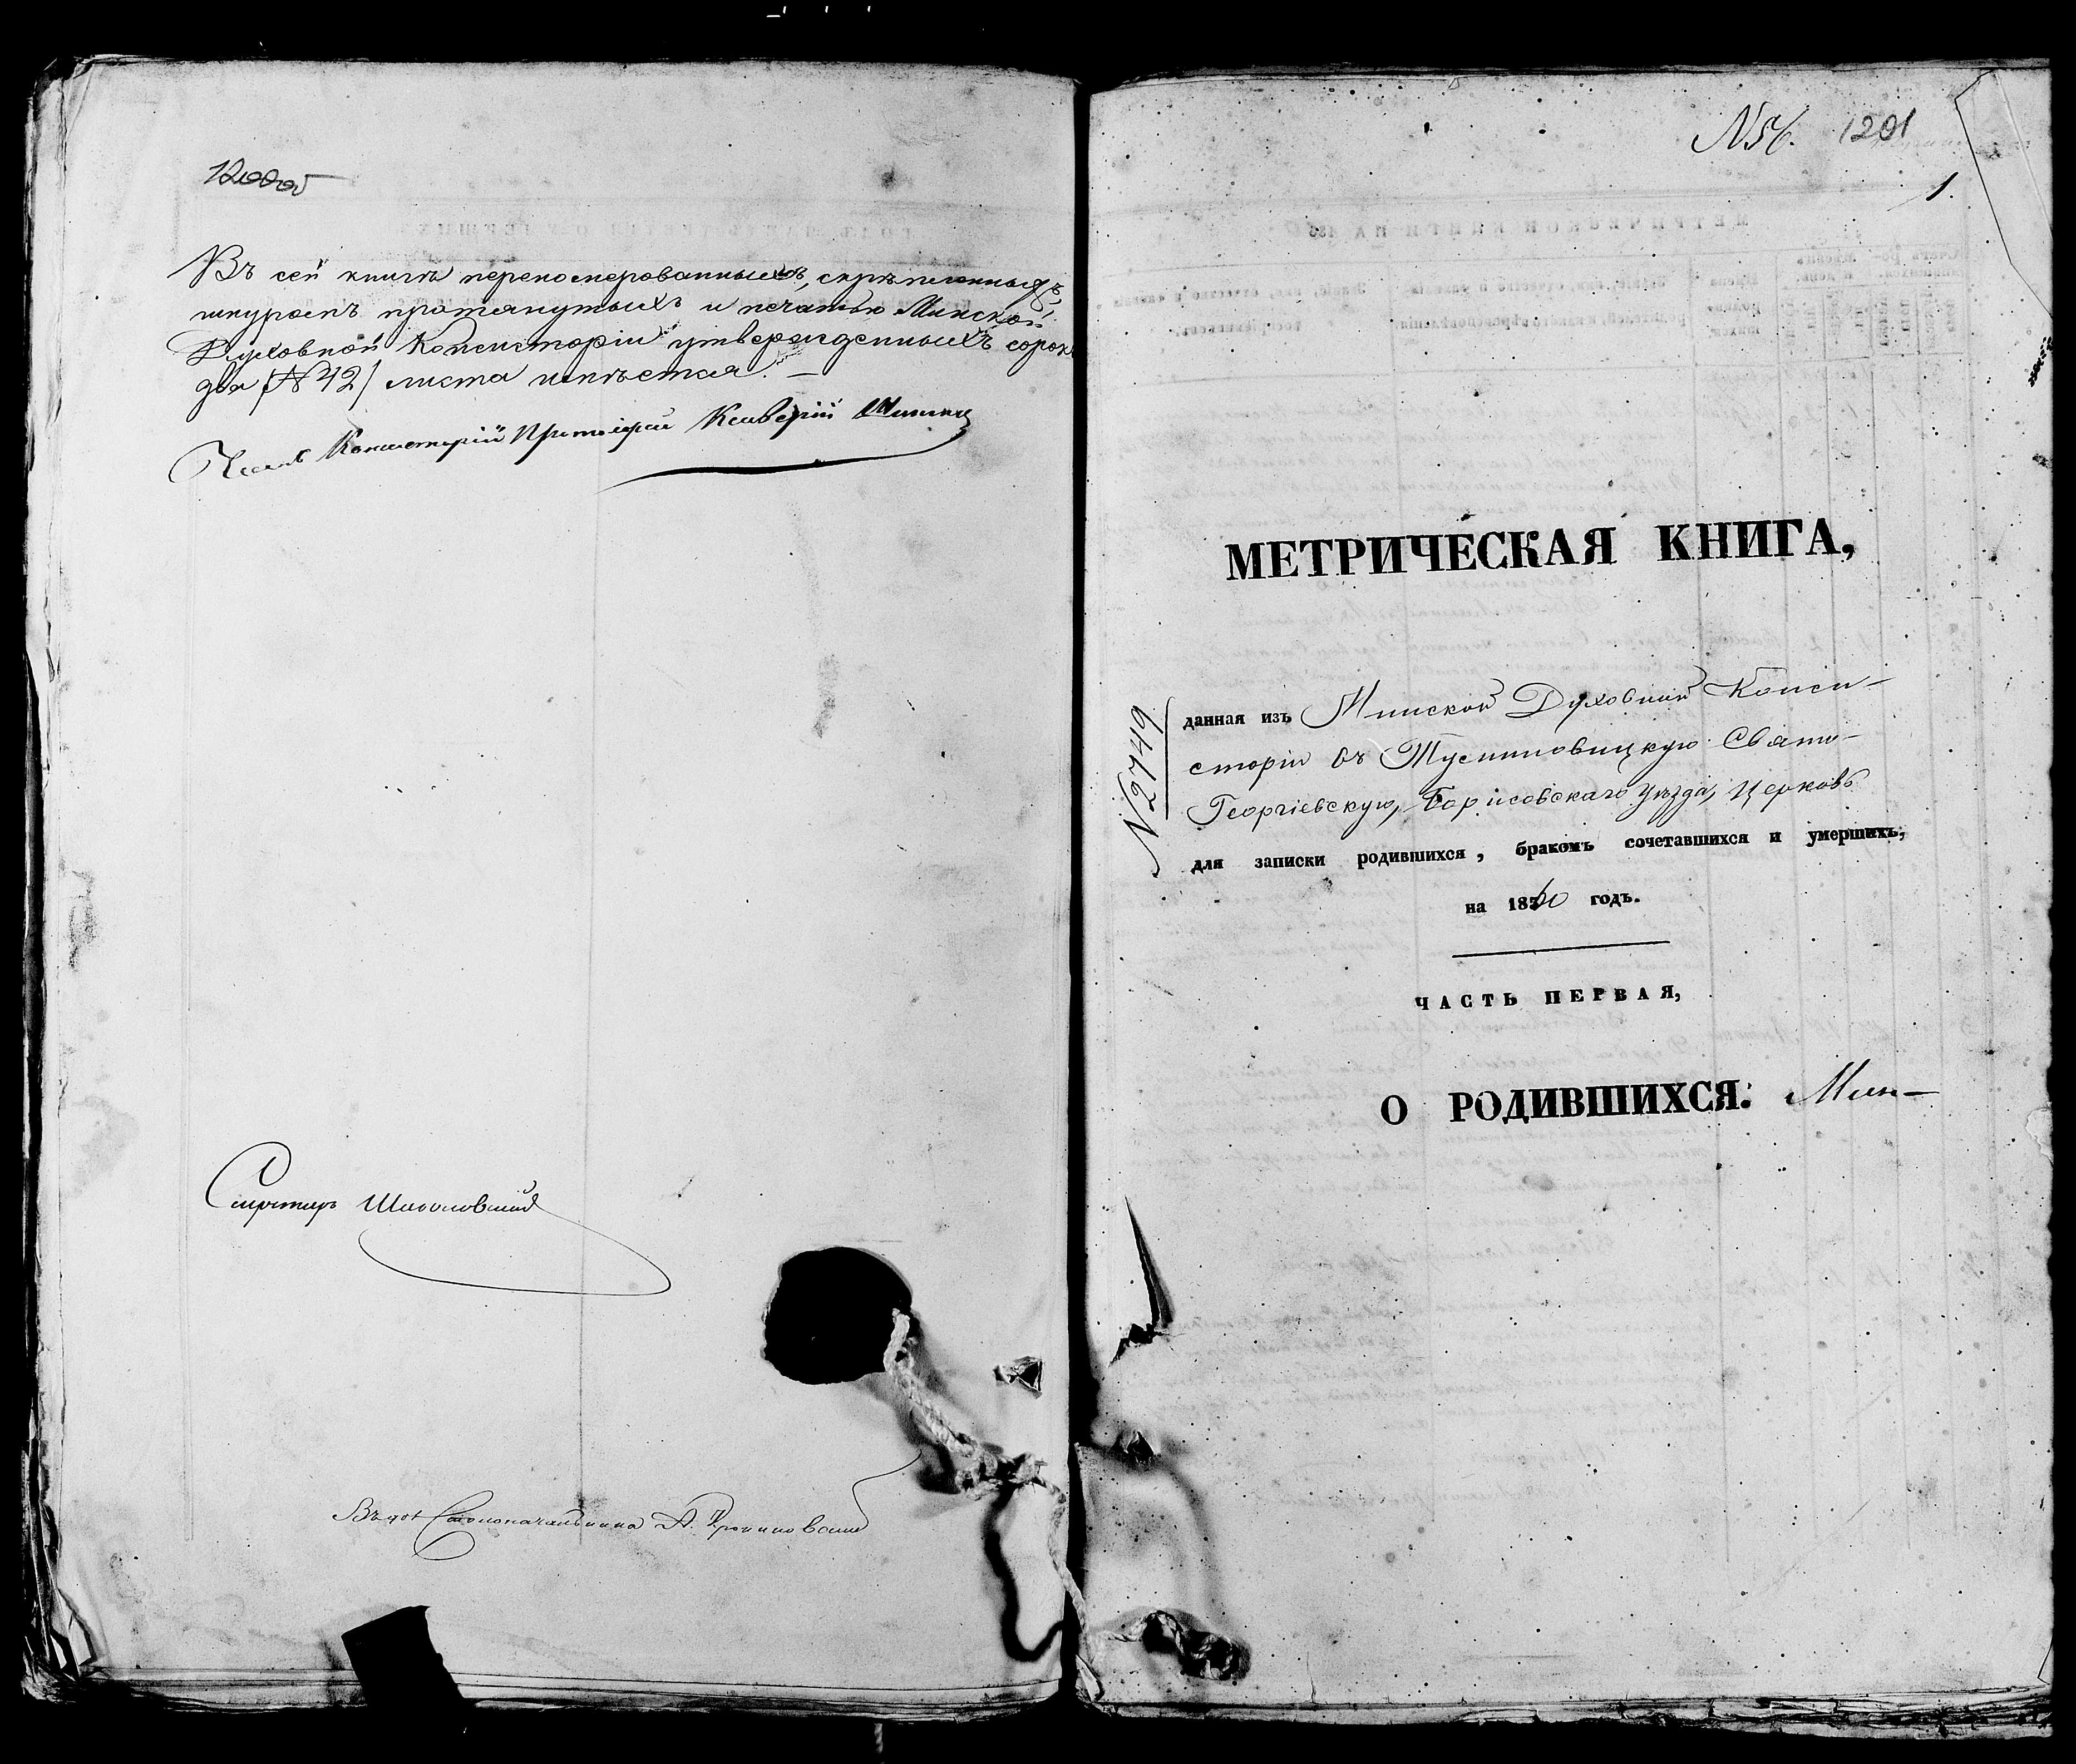 1200об
Въ сей книгѣ переномерованныхъ, скрѣпленныхъ,
шнуромъ протянутыхъ и печатью Минской
Духовной Консисторіи утвержденныхъ сорокъ
два /№ 42/ листа имѣется. —
Членъ Консисторіи Протоіерей
Секретарь
Столоначальника
№ 56. 1201
1.
МЕТРИЧЕСКАЯ КНИГА,
№ 2749
данная изъ Минской Духовной Конси-
сторіи въ Свято-
Георгіевскую, Борисовскаго уѣзда, Церковь
для записки родившихся, бракомъ сочетавшихся и умершихъ,
на 1860 годъ.
ЧАСТЬ ПЕРВАЯ,
О РОДИВШИХСЯ. Мин-